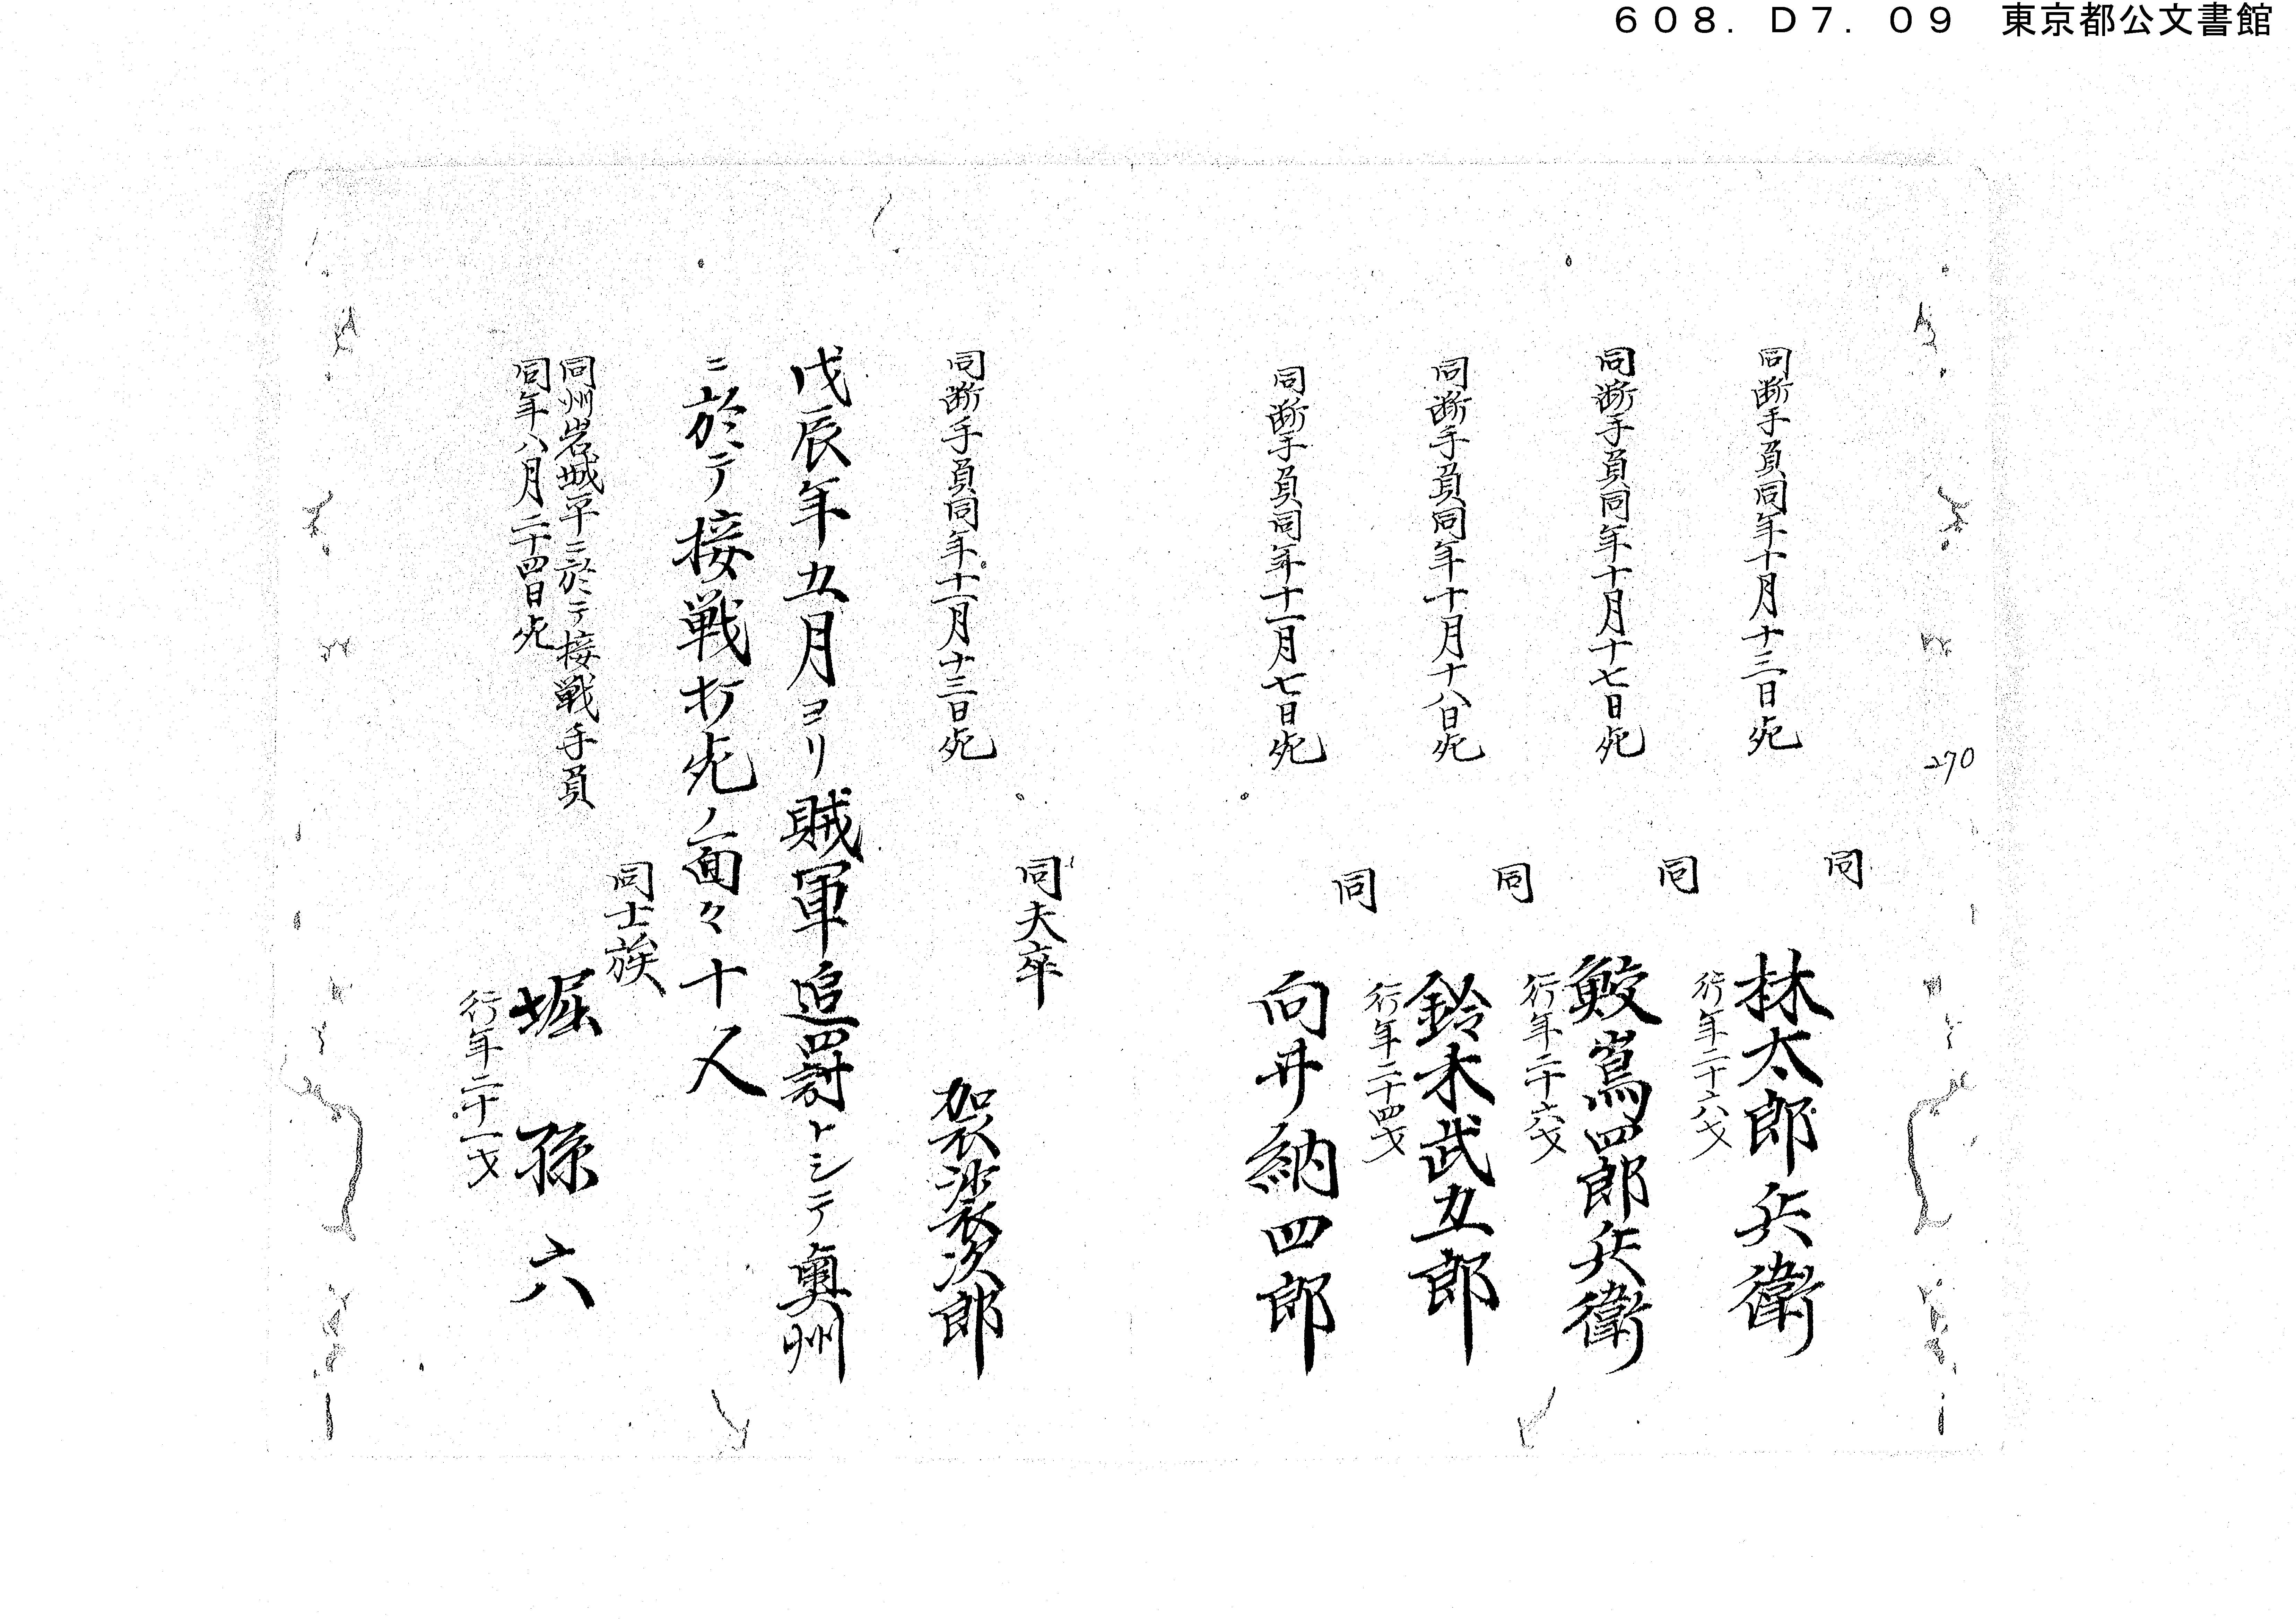 608.D7.09 東京都公文書館
270
同断手負同年十月十三日死
同
林太郎兵衛
行年二十六才
同断手負同年十月十七日死
同
鮫嶌四郎兵衛
行年二十六才
同断手負同年十月十八日死
同
鈴木武五郎
行年二十四才
同断手負同年十一月七日死
同
向井納四郎
同断手負同年十一月十三日死
同夫卒
袈裟次郎
戊辰年五月ヨリ賊軍追罰トシテ奥州
ニ於テ接戦打死ノ面々十人
同州岩城平ニ於テ接戦手負
同年八月二十四日死
同士族
堀孫六
行年二十一才